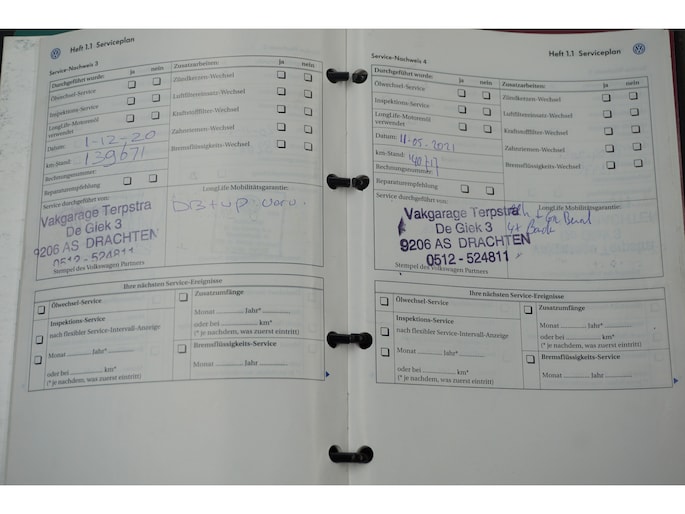 Heft 1.1 Serviceplan
Service-Nachweis 3
Durchgeführt wurde: ja nein
Ölwechsel-Service
Inspektions-Service
LongLife-Motorenöl verwendet
Datum: 1-12-20
km-Stand: 139671
Rechnungsnummer:
Reparaturempfehlung
Service durchgeführt von:
Vakgarage Terpstra
De Giek 3
9206 AS DRACHTEN
0512 - 524811
Stempel des Volkswagen Partners
Zusatzarbeiten: ja nein
Zündkerzen-Wechsel
Luftfiltereinsatz-Wechsel
Kraftstofffilter-Wechsel
Zahnriemen-Wechsel
Bremsflüssigkeits-Wechsel
LongLife Mobilitätsgarantie:
Ihre nächsten Service-Ereignisse
Ölwechsel-Service
Inspektions-Service
nach flexibler Service-Intervall-Anzeige
Monat Jahr*
oder bei km*
(* je nachdem, was zuerst eintritt)
Zusatzumfänge
Monat Jahr*
oder bei km*
(* je nachdem, was zuerst eintritt)
Bremsflüssigkeits-Service
Monat Jahr
Heft 1.1 Serviceplan
Service-Nachweis 4
Durchgeführt wurde: ja nein
Ölwechsel-Service
Inspektions-Service
LongLife-Motorenöl verwendet
Datum: 11-05-2021
km-Stand:
Rechnungsnummer:
Reparaturempfehlung
Service durchgeführt von:
Vakgarage Terpstra
De Giek 3
9206 AS DRACHTEN
0512 - 524811
Stempel des Volkswagen Partners
Zusatzarbeiten: ja nein
Zündkerzen-Wechsel
Luftfiltereinsatz-Wechsel
Kraftstofffilter-Wechsel
Zahnriemen-Wechsel
Bremsflüssigkeits-Wechsel
LongLife Mobilitätsgarantie:
Ihre nächsten Service-Ereignisse
Ölwechsel-Service
Inspektions-Service
nach flexibler Service-Intervall-Anzeige
Monat Jahr*
oder bei km*
(* je nachdem, was zuerst eintritt)
Zusatzumfänge
Monat Jahr*
oder bei km*
(* je nachdem, was zuerst eintritt)
Bremsflüssigkeits-Service
Monat Jahr